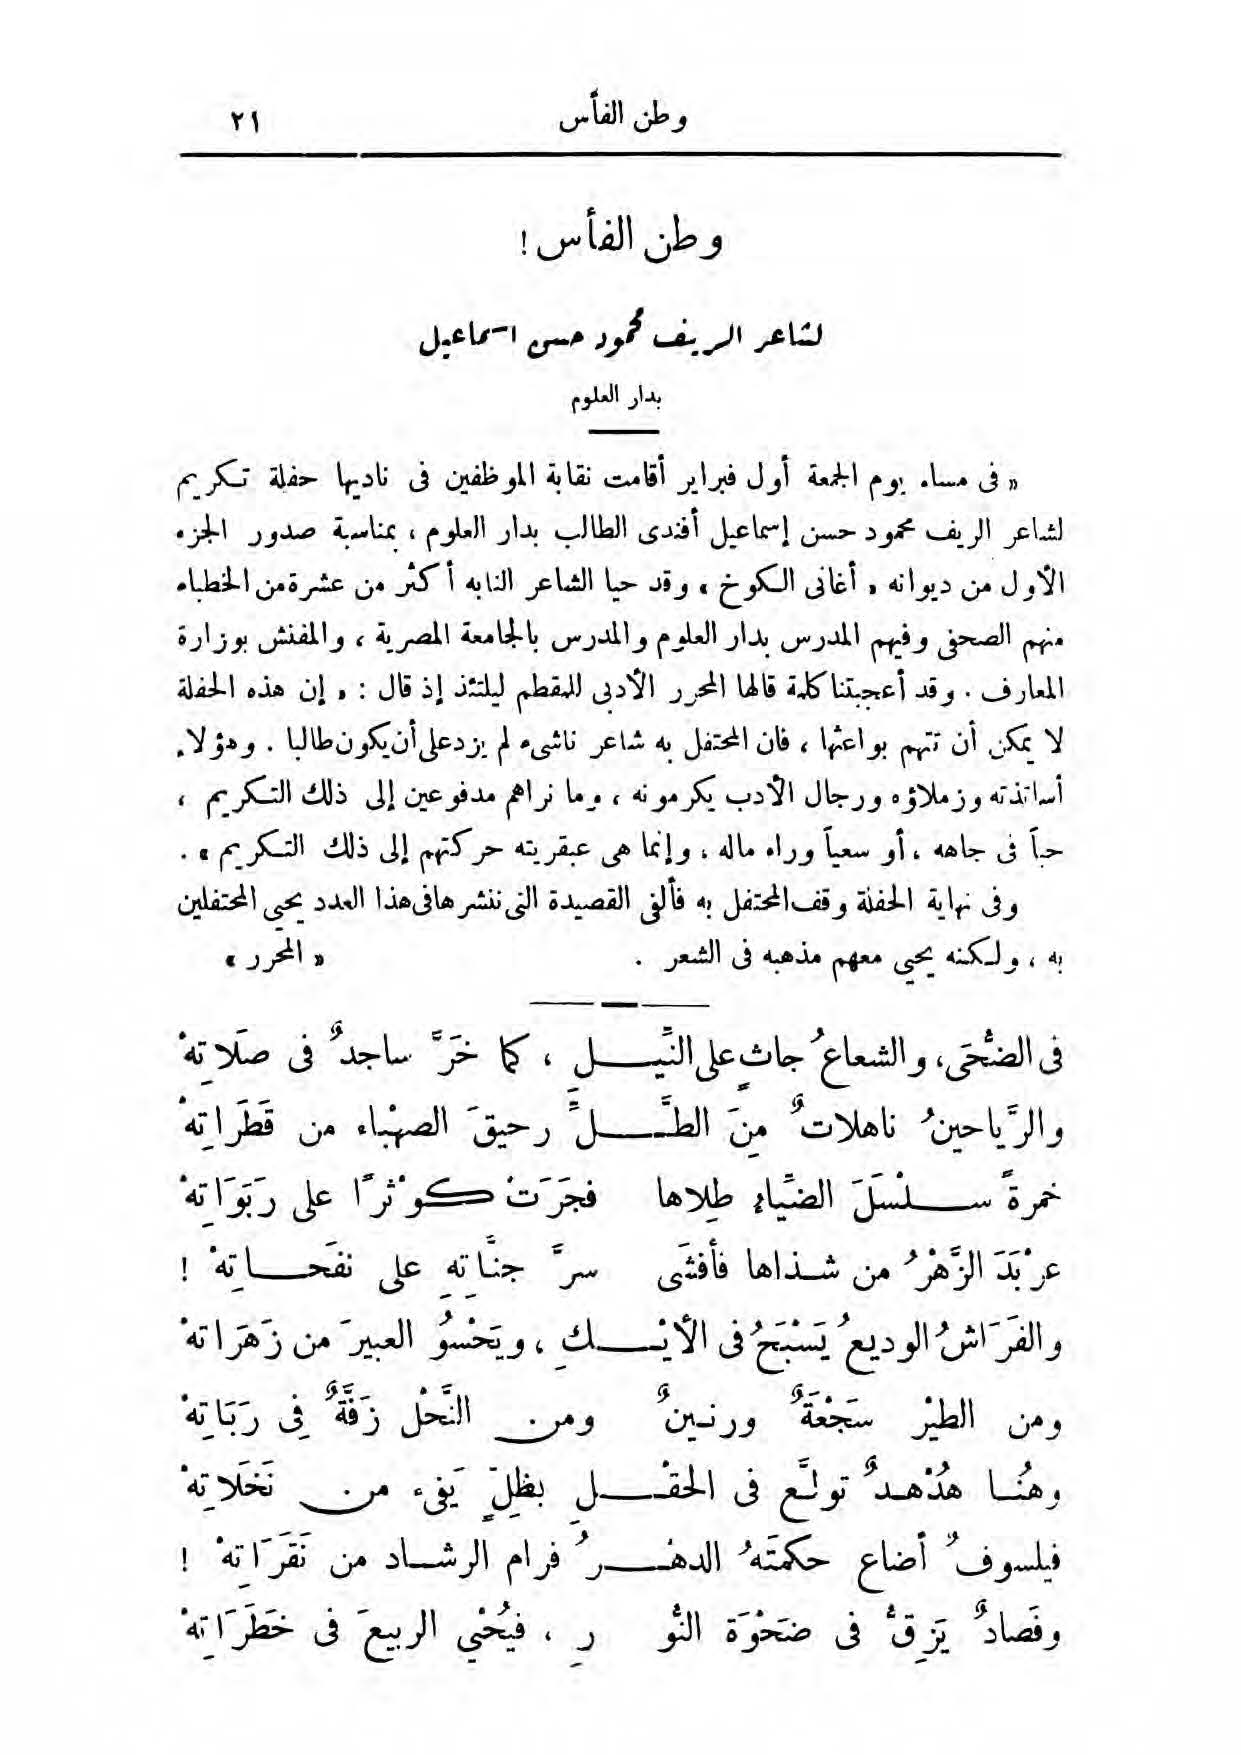 وطن الفأس ٢١
وطن الفأس !
لشاعر الريف محمود حسن اسماعيل
بدار العلوم
« فى مساء يوم الجمعة أول فبراير أقامت نقابة الموظفين فى ناديها حفلة تكريم
لشاعر الريف محمود حسن إسماعيل أفندى الطالب بدار العلوم ، بمناسبة صدور الجزء
الأول من ديوانه « أغانى الكوخ » وقد حيا الشاعر النابه أكثر من عشرة من الخطباء
منهم الصحفى وفيهم المدرس بدار العلوم والمدرس بالجامعة المصرية ، والمفتش بوزارة
المعارف . وقد أعجبتنا كلمة قالها المحرر الأدبى للمقطم ليلتئذ إذ قال : « إن هذه الحفلة
لا يمكن أن تتهم بواعثها ، فان المحتفل به شاعر ناشىء لم يزد على أن يكون طالبا . وهؤلاء
أساتذته وزملاؤه ورجال الأدب يكرمونه ، وما نراهم مدفوعين إلى ذلك التكريم ،
حباً فى جاهه ، أو سعياً وراء ماله ، وإنما هى عبقريته حركتهم إلى ذلك التكريم » .
وفى نهاية الحفلة وقف المحتفل به فألقى القصيدة التى ننشرها فى هذا العدد يحيى المحتفلين
به ، ولكنه يحيى معهم مذهبه فى الشعر . « المحرر »
فى الضُّحَى، والشعاعُ جاثٍ على النِّيـــل ، كما خَرَّ ساجدٌ فى صَلَاتِهْ
والرَّياحينُ ناهلاتٌ مِنَ الطَّـــلِّ رحيقَ الصهْباء من قَطَرَاتِهْ
خمرةً سلْسَلَ الضِّياءِ طِلاها فجَرَتْ كوْثرًا على رَبَوَاتِهْ
عرْبَدَ الزَّهْرُ من شذاها فأفشَى سرَّ جنَّاتِهِ على نفَحاتِهْ !
والفَرَاشُ الوديعُ يَسْبَحُ فى الأيْـــكِ ، ويَحْسُوُ العبيرَ من زَهَرَاتهْ
ومن الطيْر سَجْعَةٌ ورنينٌ ومن النَّحْل زَفَّةٌ فِى رَبَاتِهْ
وهُنا هُدْهدٌ تولَّع فى الحقْـــلِ بظِلٍّ يَفىء من نَخَلاتِهْ
فيلسوفٌ أضاع حكمتَهُ الدهْـــرُ فرام الرشاد من نَقَرَاتِهْ !
وفَصادٌ يَزِقُّ فى ضَحْوَة النُّو رِ ، فيُحْيِي الربيعَ فى خطَرَاتِهْ